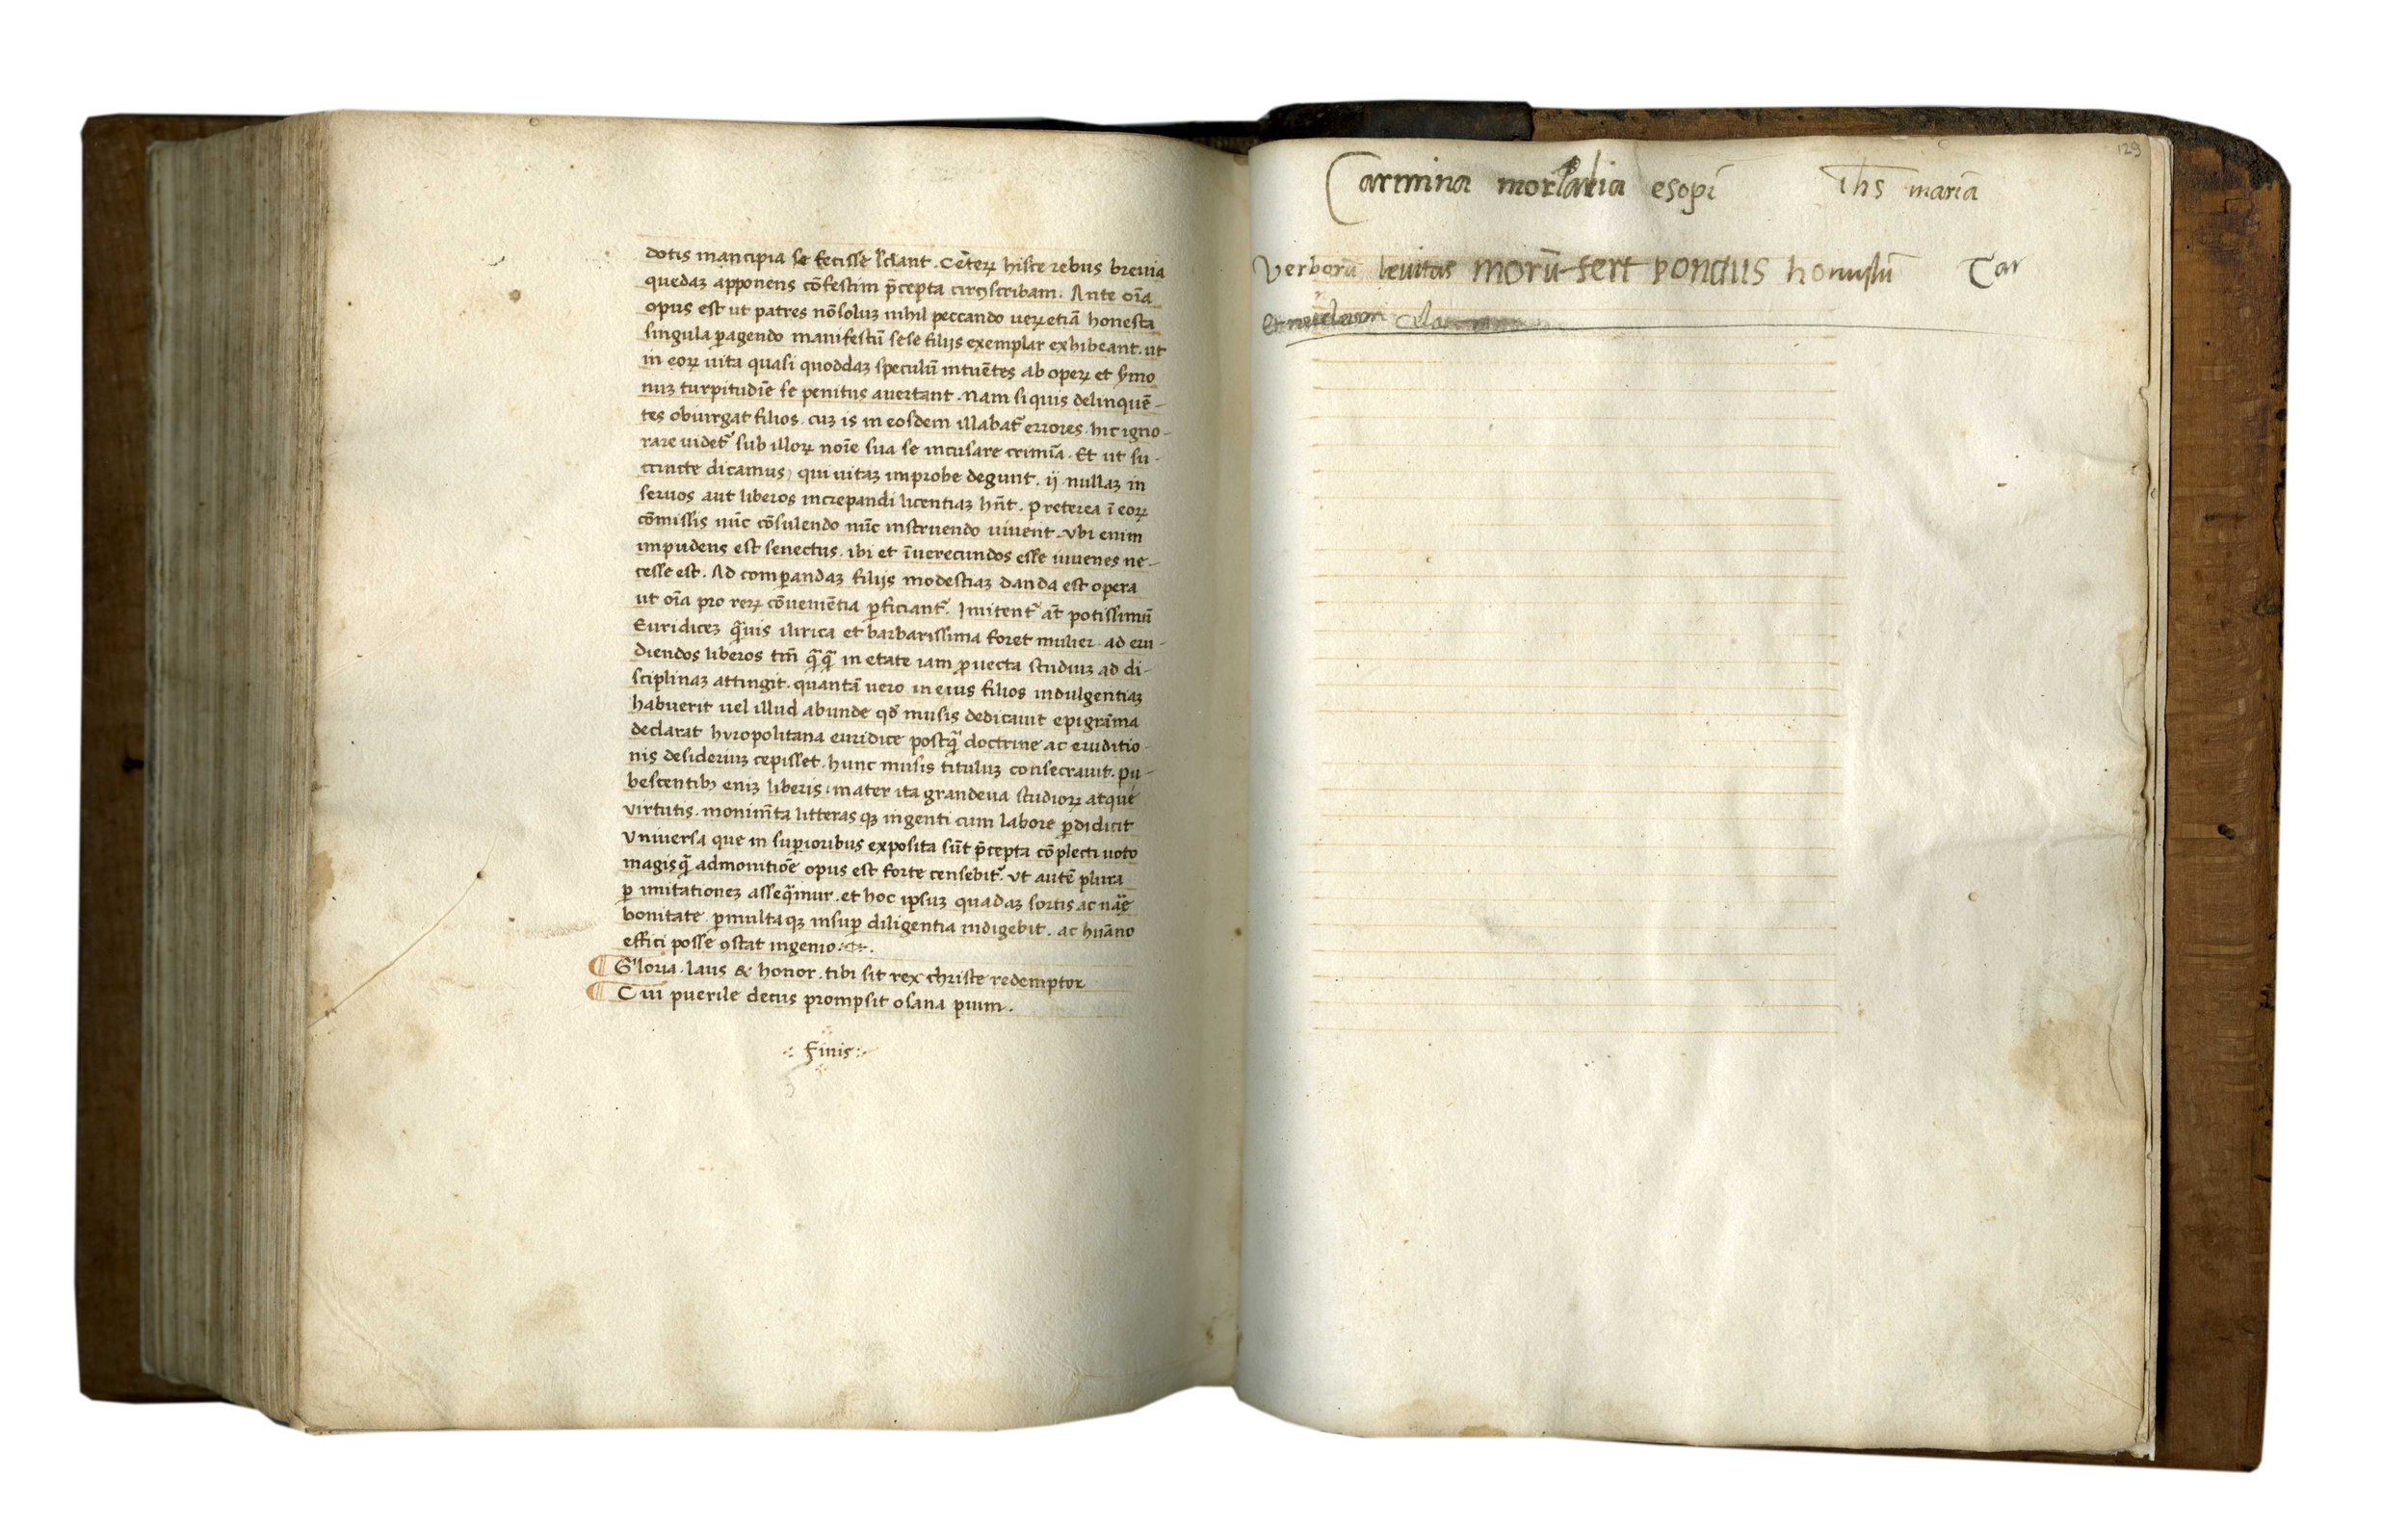 dotis mancipia se fecisse sciant. Ceteꝝ hisce rebus breuia
quedaꝫ apponens cōfestim p̄cepta circūscribam. Ante oīa
opus est ut patres nō soluꝫ nihil peccando ueꝝ etiā honesta
singula ꝑagendo manifestū sese filijs exemplar exhibeant. ut
in eoꝝ uita quasi quoddaꝫ speculū intuētes ab opeꝝ et
nuꝫ turpitudīe se penitus auertant. Nam si quis delinquē-
tes obiurgat filios. cuꝫ is in eosdem illabat᷑ errores. hic igno-
rare uidet᷑ sub illoꝝ noīe sua se incusare crimīa. Et ut su-
ccincte dicamus, qui uitaꝫ improbe degunt. ij nullaꝫ in
seruos aut liberos increpandi licentiaꝫ hn̄t. Preterea ī eoꝝ
cōmissis nūc cōsulendo nūc instruendo uiuent. Vbi enim
impudens est senectus. ibi et īuerecundos esse iuuenes ne-
cesse est. Ad comꝑandaꝫ filijs modestiaꝫ danda est opera
ut oīa pro reꝝ cōueniētia ꝑficiant᷑. Imitent᷑ at̄ potissimū
Euridiceꝫ q̄uis ilirica et barbarissima foret mulier. ad eru-
diendos liberos tm̄ q̄q̄ in etate iam ꝓuecta studiuꝫ ad di-
sciplinaꝫ attingit. quantā uero in eius filios indulgentiaꝫ
habuerit uel illud abunde qđ musis dedicauit epigrāma
declarat hyropolitana euridice postq̄ doctrine ac eruditio-
nis desideriuꝫ cepisset. hunc musis tituluꝫ consecrauit. Pu-
bescentibꝫ eniꝫ liberis: mater ita grandeua studioꝝ atque
virtutis. monim̄ta litterasqꝫ ingenti cum labore ꝑdidicit
Vniuersa que in suꝑioribus exposita sūt p̄cepta cōplecti uoto
magisq̄ admonitiōe opus est forte censebit᷑. Vt autē plura
ꝑ imitationeꝫ asseq̄mur. et hoc ipsuꝫ quadaꝫ sortis ac nāe
bonitate. ꝑmultaqꝫ insuꝑ diligentia indigebit. ac hūano
effici posse ꝯstat ingenio:
Gloria. laus & honor. tibi sit rex christe redemptor
Cui puerile decus prompsit osana pium.
Finis
129
Carmina esopi ihs maria
Verborū leuitas morū fert pondus honustū Car